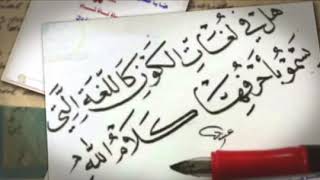 هل في لغات الكون كاللغة التي
يسمو بأحرفها كلام الله